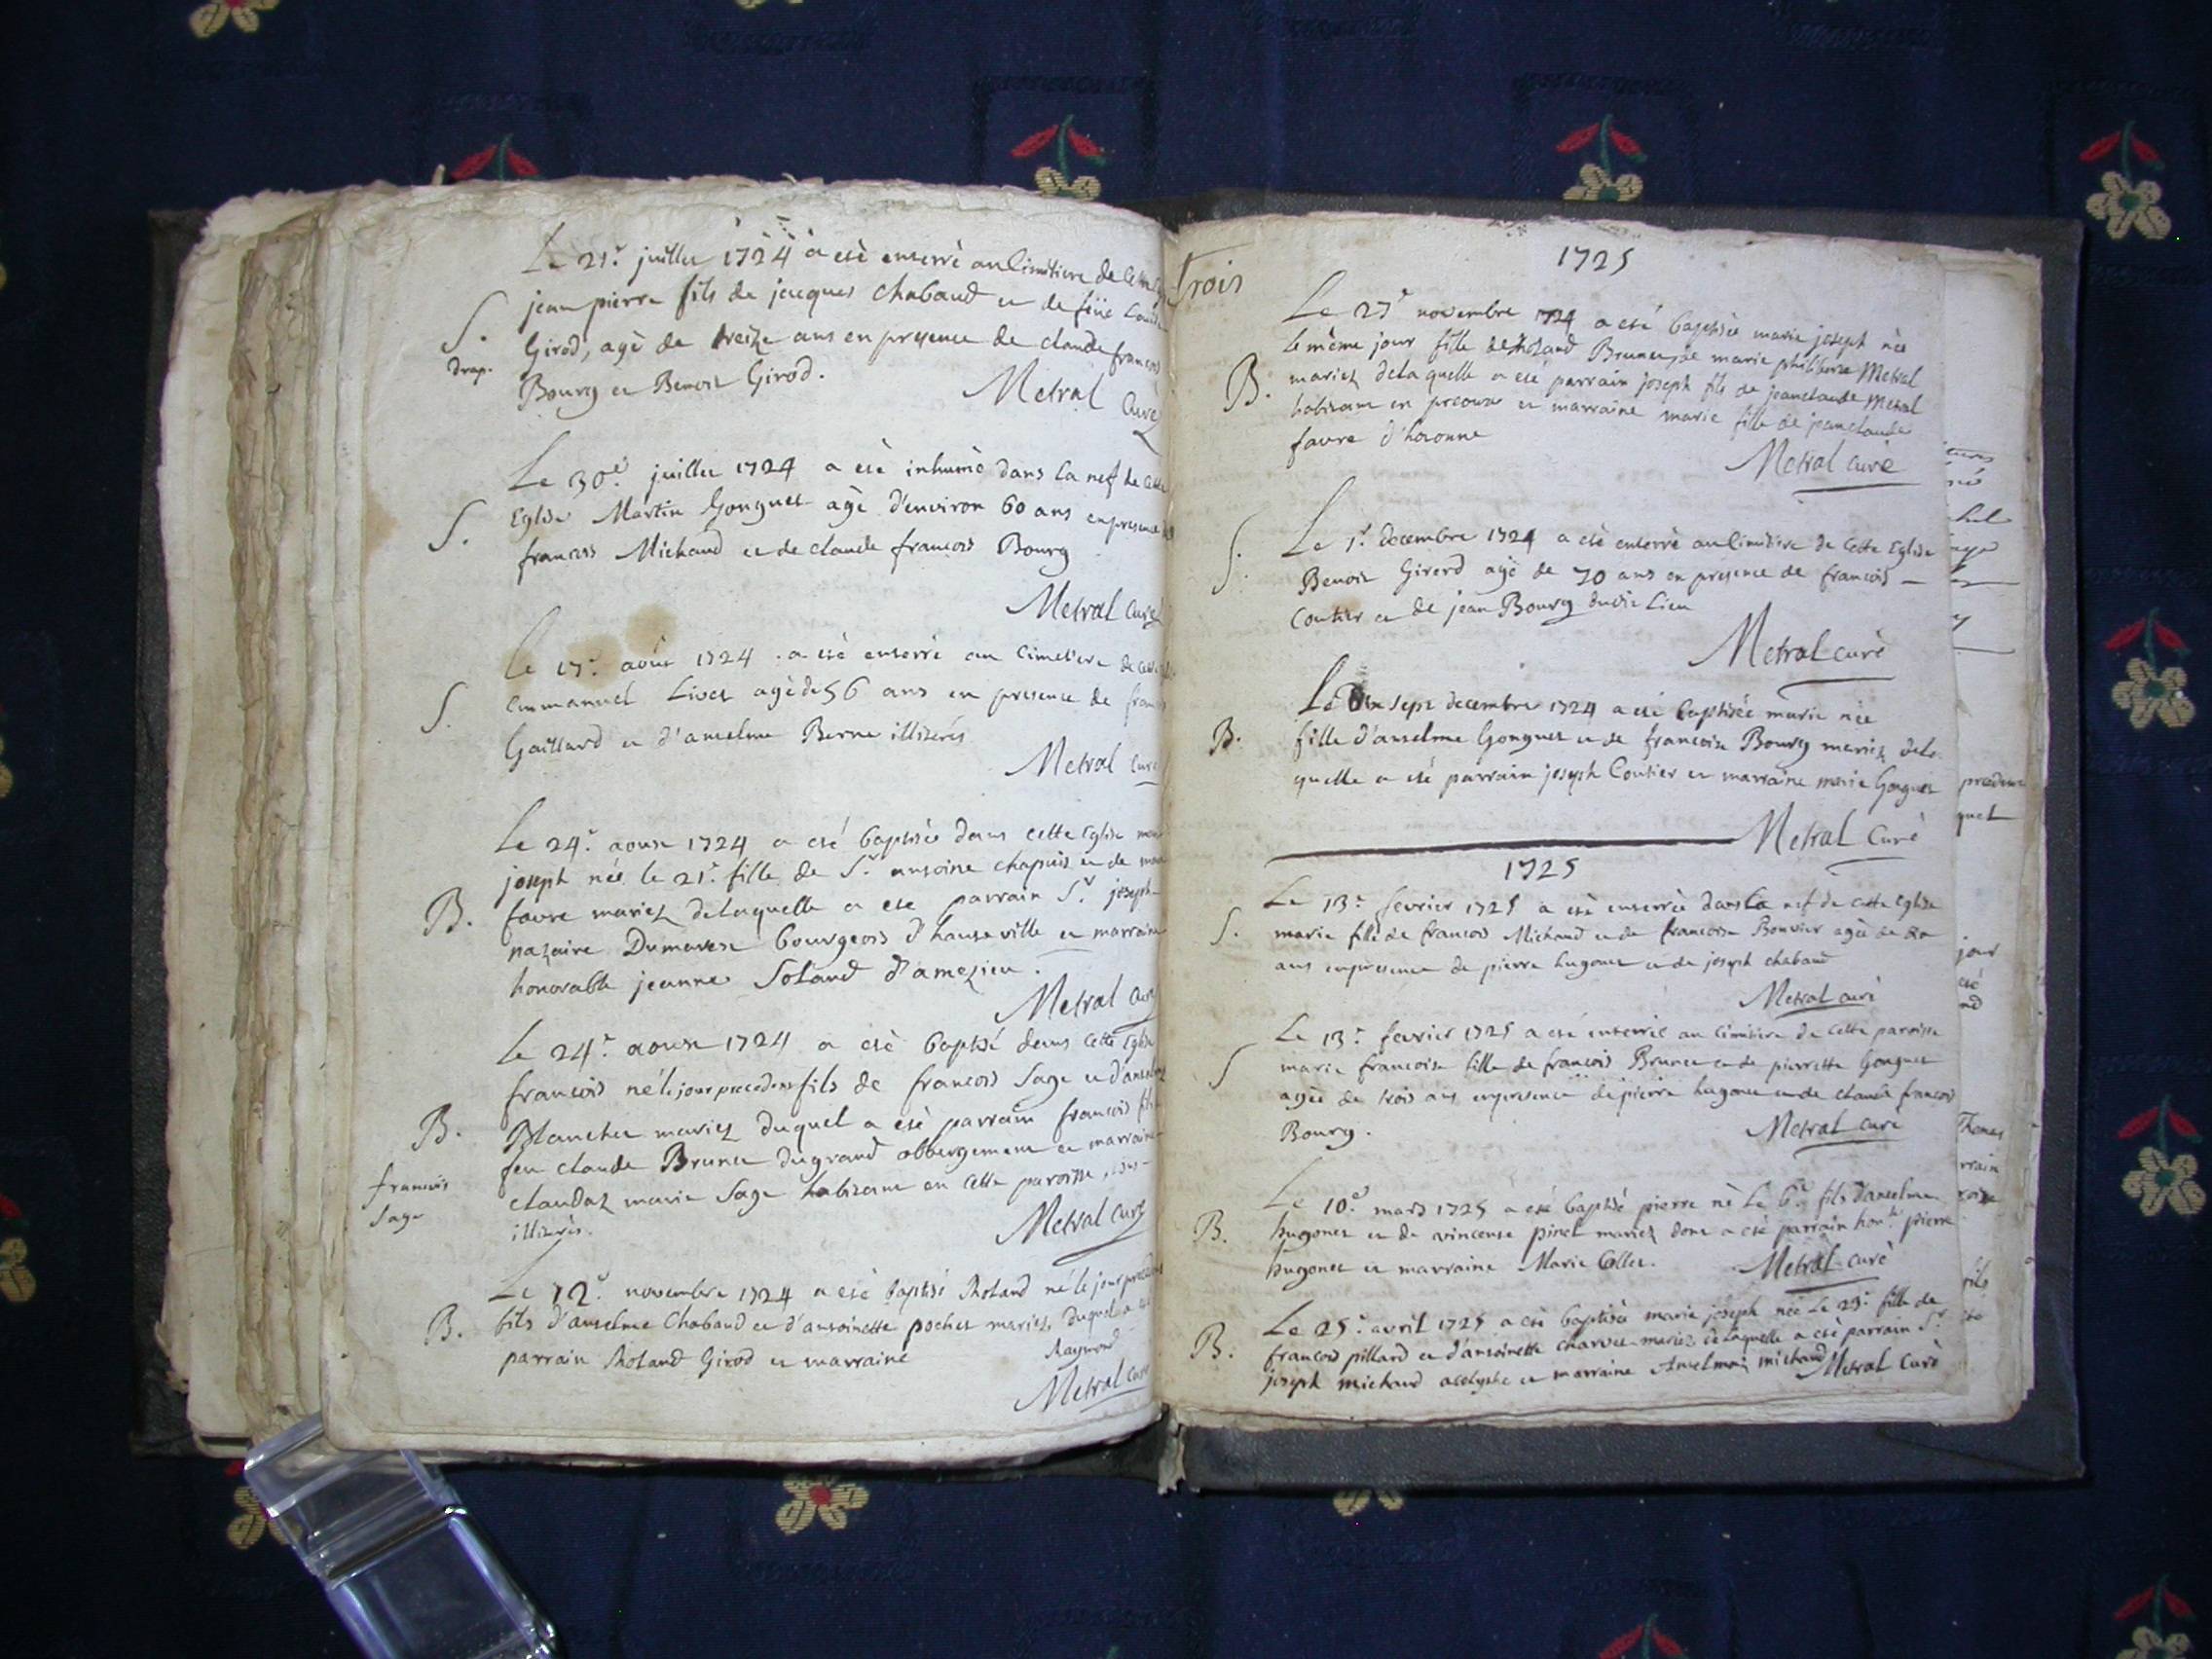 Le 21.e juillet 1724 a esté enterré au cimitiere de cette
S.
jean pierre fils de jacques Chabaud et de feüe Louise
drap.
Girod, agé de treize ans en presence de claude francois
Bourg et Benoit Girod.
Metral Curé
Le 30.e juillet 1724 a esté inhumé dans la nef de cette
S.
Eglise Martin Gonguet agé d'environ 60 ans en presence de
francois Michaud et de claude francois Bourg
Metral Curé
Le 17.e août 1724 a esté enterré au Cimetiere de cette
S.
Emmanuel Livet agé de 56 ans en presence de
Gaillard et d'anselme Berne illiterés
Metral Curé
Le 24.e aoust 1724 a esté baptisée dans cette Eglise
joseph née le 21.e fille de S.r antoine chapuis et de
B.
favre mariez de laquelle a esté parrain S.r joseph
nazaire Dumarest bourgeois d'hauteville et marraine
honorable jeanne Soland d'amezieu.
Metral Curé
Le 24.e aoust 1724 a esté baptisé dans cette Eglise
francois né le jour precedent fils de francois Sage et d'anselme
B.
Blanchet mariez duquel a esté parrain francois fils
francois
Sage
feu claude Brunet du grand abbergement et marraine
claudaz marie Sage habitante en cette paroisse, tous
illiterés.
Metral Curé
Le 12.e novembre 1724 a esté baptisé Roland né le jour precedent
B.
fils d'anselme Chabaud et d'antoinette pochet mariez, duquel a
parrain Roland Girod et marraine
Raymond
Metral Curé
trois
1725
Le 27.e novembre 1724 a esté baptisée marie joseph née
le même jour fille de Roland Brunet, et marie philiberte Metral
B.
mariez de laquelle a esté parrain joseph fils de jeanclaude Metral
habitant en et marraine marie fille de jeanclaude
favre d'hotonne
Metral curé
S.
Le 1.r decembre 1724 a esté enterré au cimitiere de Cette Eglise
Benoit Girerd agé de 70 ans en presence de francois
Coutier et de jean Bourg dudit Lieu
Metral curé
Le dix sept decembre 1724 a esté baptisée marie née
B.
fille d'anselme Gonguet et de francoise Bourg mariez dela
quelle a esté parrain joseph Coutier et marraine marie Gonguet
Metral Curé
1725
Le 13.e fevrier 1725 a esté enterrée dans la nef de cette Eglise
S.
marie fille de francois Michaud et de francoise Bouvier agée de 20
ans en presence de pierre hugonet et de joseph chabaud
Metral curé
Le 13.e fevrier 1725 a esté enterrée au cimitiere de cette paroisse
S
marie francoise fille de francois Brunet et de pierrette Gonguet
agée de trois ans en presence de pierre hugonet et de claude francois
Bourg.
Metral curé
Le 10.e mars 1725 a esté baptisé pierre né le 6.e fils d'anselme
B.
hugonet et de vincente pinet mariez dont a esté parrain hon.le pierre
hugonet et marraine Marie Collet.
Metral curé
Le 25.e avril 1725 a esté baptisée marie joseph née le 23.e fille de
B.
francois pillard et d'antoinette charvet mariez de laquelle a esté parrain S.r
joseph michaud acolythe et marraine Anselmaz michaud Metral Curé
quet
jour
esté
Thomas
fils